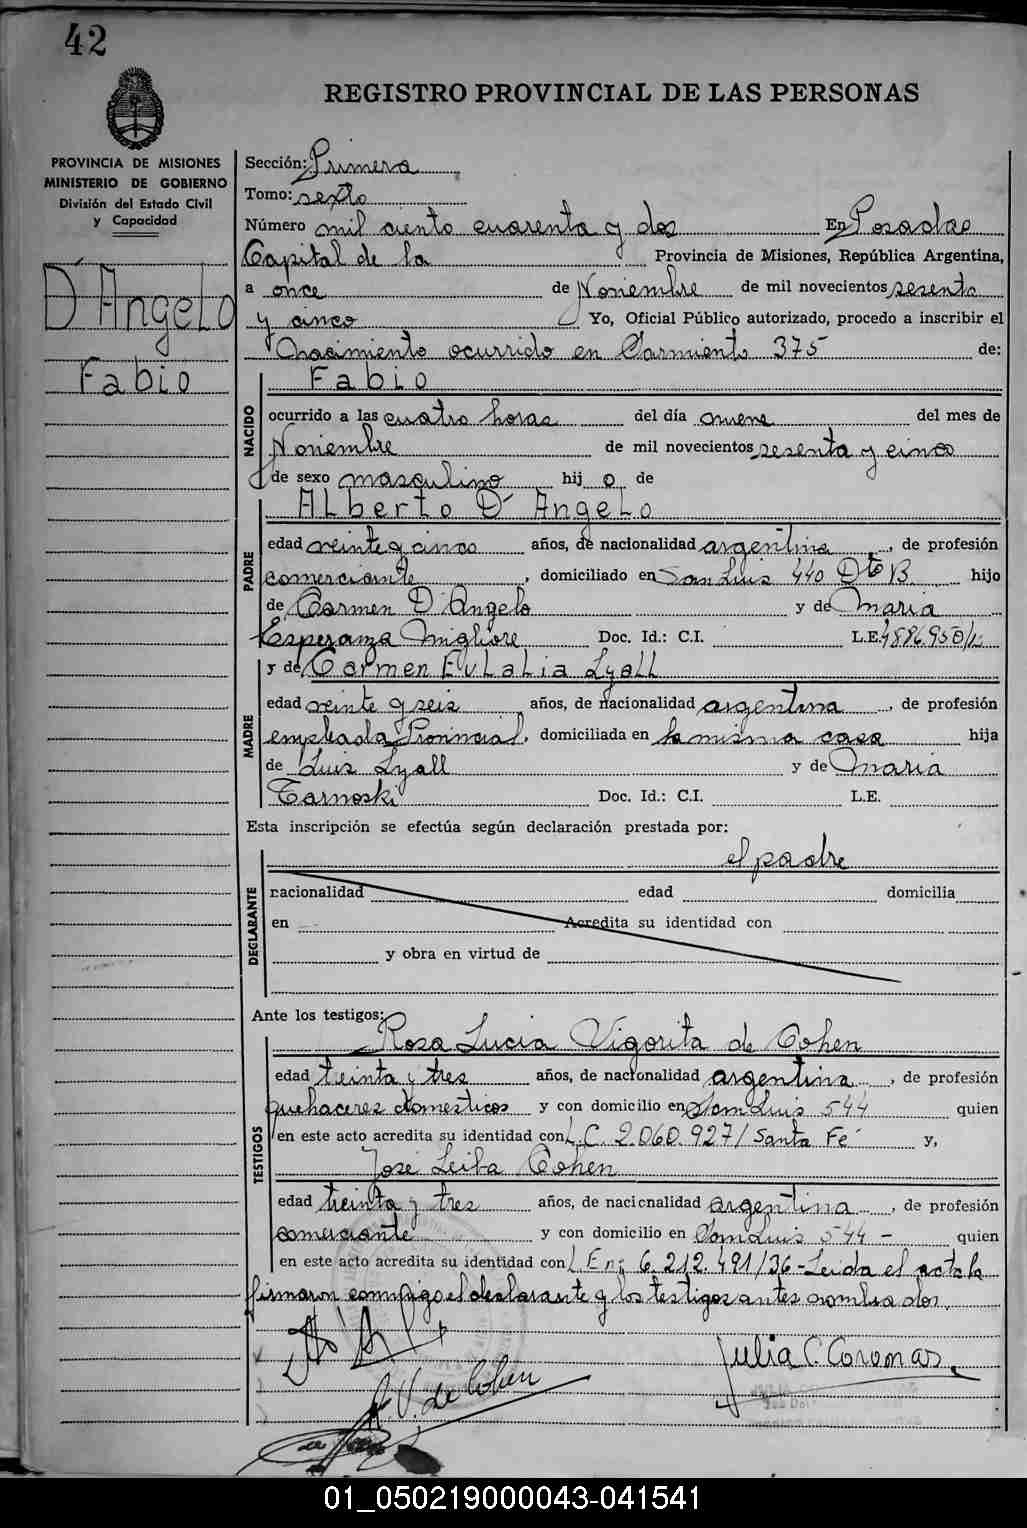 42
REGISTRO PROVINCIAL DE LAS PERSONAS
PROVINCIA DE MISIONES
MINISTERIO DE GOBIERNO
División del Estado Civil
y Capacidad
D'Angelo
Fabio
Sección: Primera
Tomo: sexto
Número mil ciento cuarenta y dos En Posadas
Capital de la Provincia de Misiones, República Argentina,
a once de Noviembre de mil novecientos sesenta
y cinco Yo, Oficial Público autorizado, procedo a inscribir el
Nacimiento ocurrido en Sarmiento 375 de:
NACIDO
Fabio
ocurrido a las cuatro horas del día nueve del mes de
Noviembre de mil novecientos sesenta y cinco
de sexo masculino hij o de
PADRE
Alberto D'Angelo
edad veinte y cinco años, de nacionalidad argentina, de profesión
comerciante, domiciliado en San Luis 440 Dto B. hijo
de Carmen D'Angelo y de Maria
Esperanza Migliore Doc. Id.: C.I. L.E.
MADRE
y de Carmen Eulalia Lyall
edad veinte y seis años, de nacionalidad argentina, de profesión
empleada Provincial, domiciliada en la misma casa hija
de Luis Lyall y de Maria
Tarnoski Doc. Id.: C.I. L.E.
Esta inscripción se efectúa según declaración prestada por:
DECLARANTE
el padre
nacionalidad edad domicilia
en Acredita su identidad con
y obra en virtud de
Ante los testigos:
TESTIGOS
Rosa Lucia Vigorita de Cohen
edad treinta y tres años, de nacionalidad argentina, de profesión
quehaceres domesticos y con domicilio en San Luis 544 quien
en este acto acredita su identidad con L.C. 2.060.927/Santa Fé y,
José Leiba Cohen
edad treinta y tres años, de nacionalidad argentina, de profesión
comerciante y con domicilio en San Luis 544 - quien
en este acto acredita su identidad con L.En: 6.212.491/36 - Leida el acta la
firmaron conmigo el declarante y los testigos antes nombrados.
R.V. de Cohen
Julia C. Coromas
01_050219000043-041541